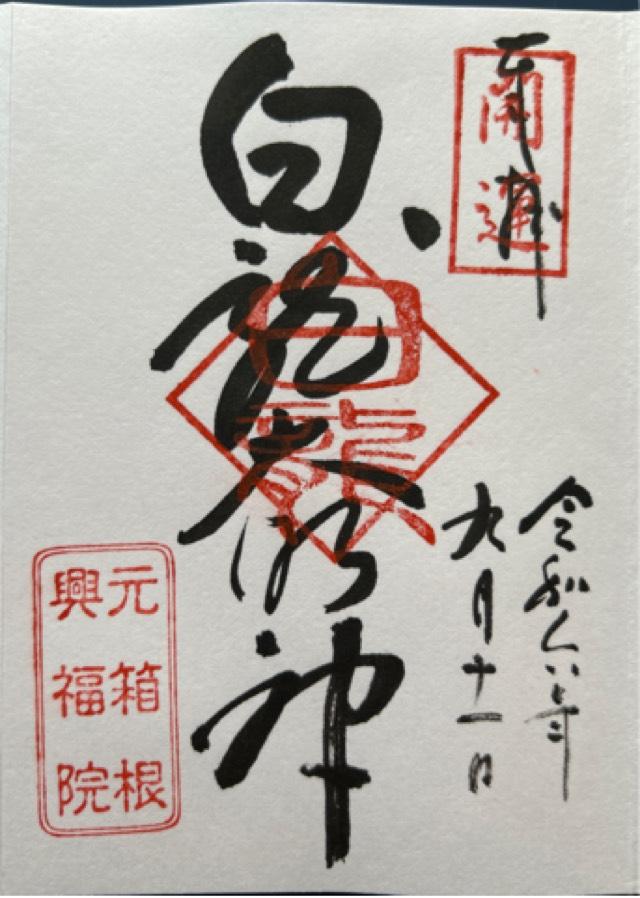 奉拝
開運
令和六年
九月十一日
白龍大明神
白龍
元箱根
興福院